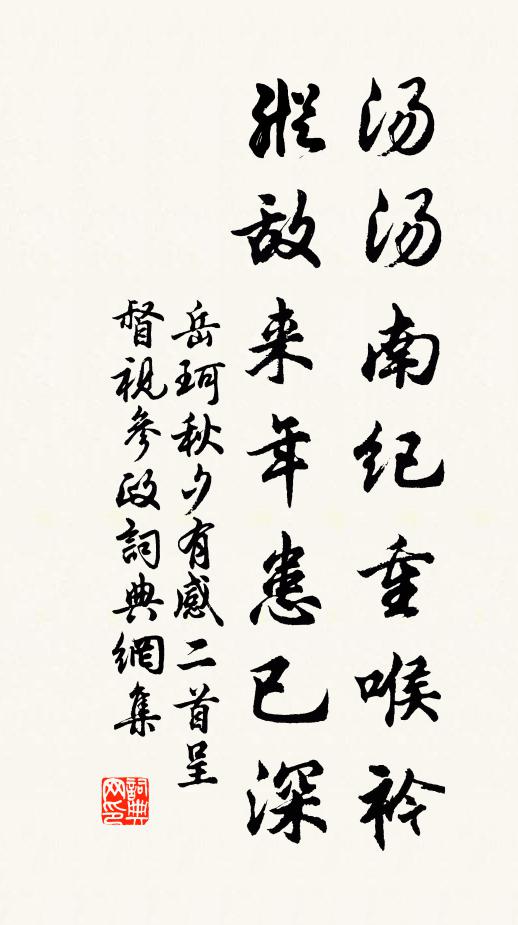 汤汤南纪重喉衿
縱敌来年患已深
岳珂秋夕有感二首呈
督視參政詞典網集
詞典
网印